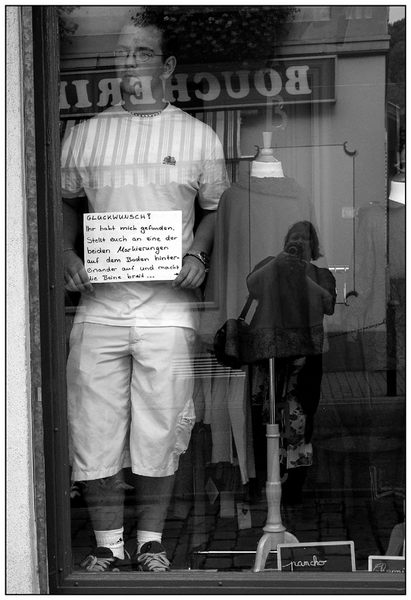 BOUCHERI
GLÜCKWUNSCH!
Ihr habt mich gefunden.
Stellt euch an eine der
beiden Markierungen
auf dem Boden hinter-
einander auf und macht
die Beine breit...
poncho